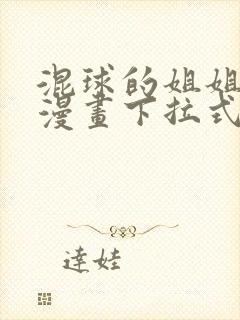 混球的姐姐
漫畫下拉式
達娃